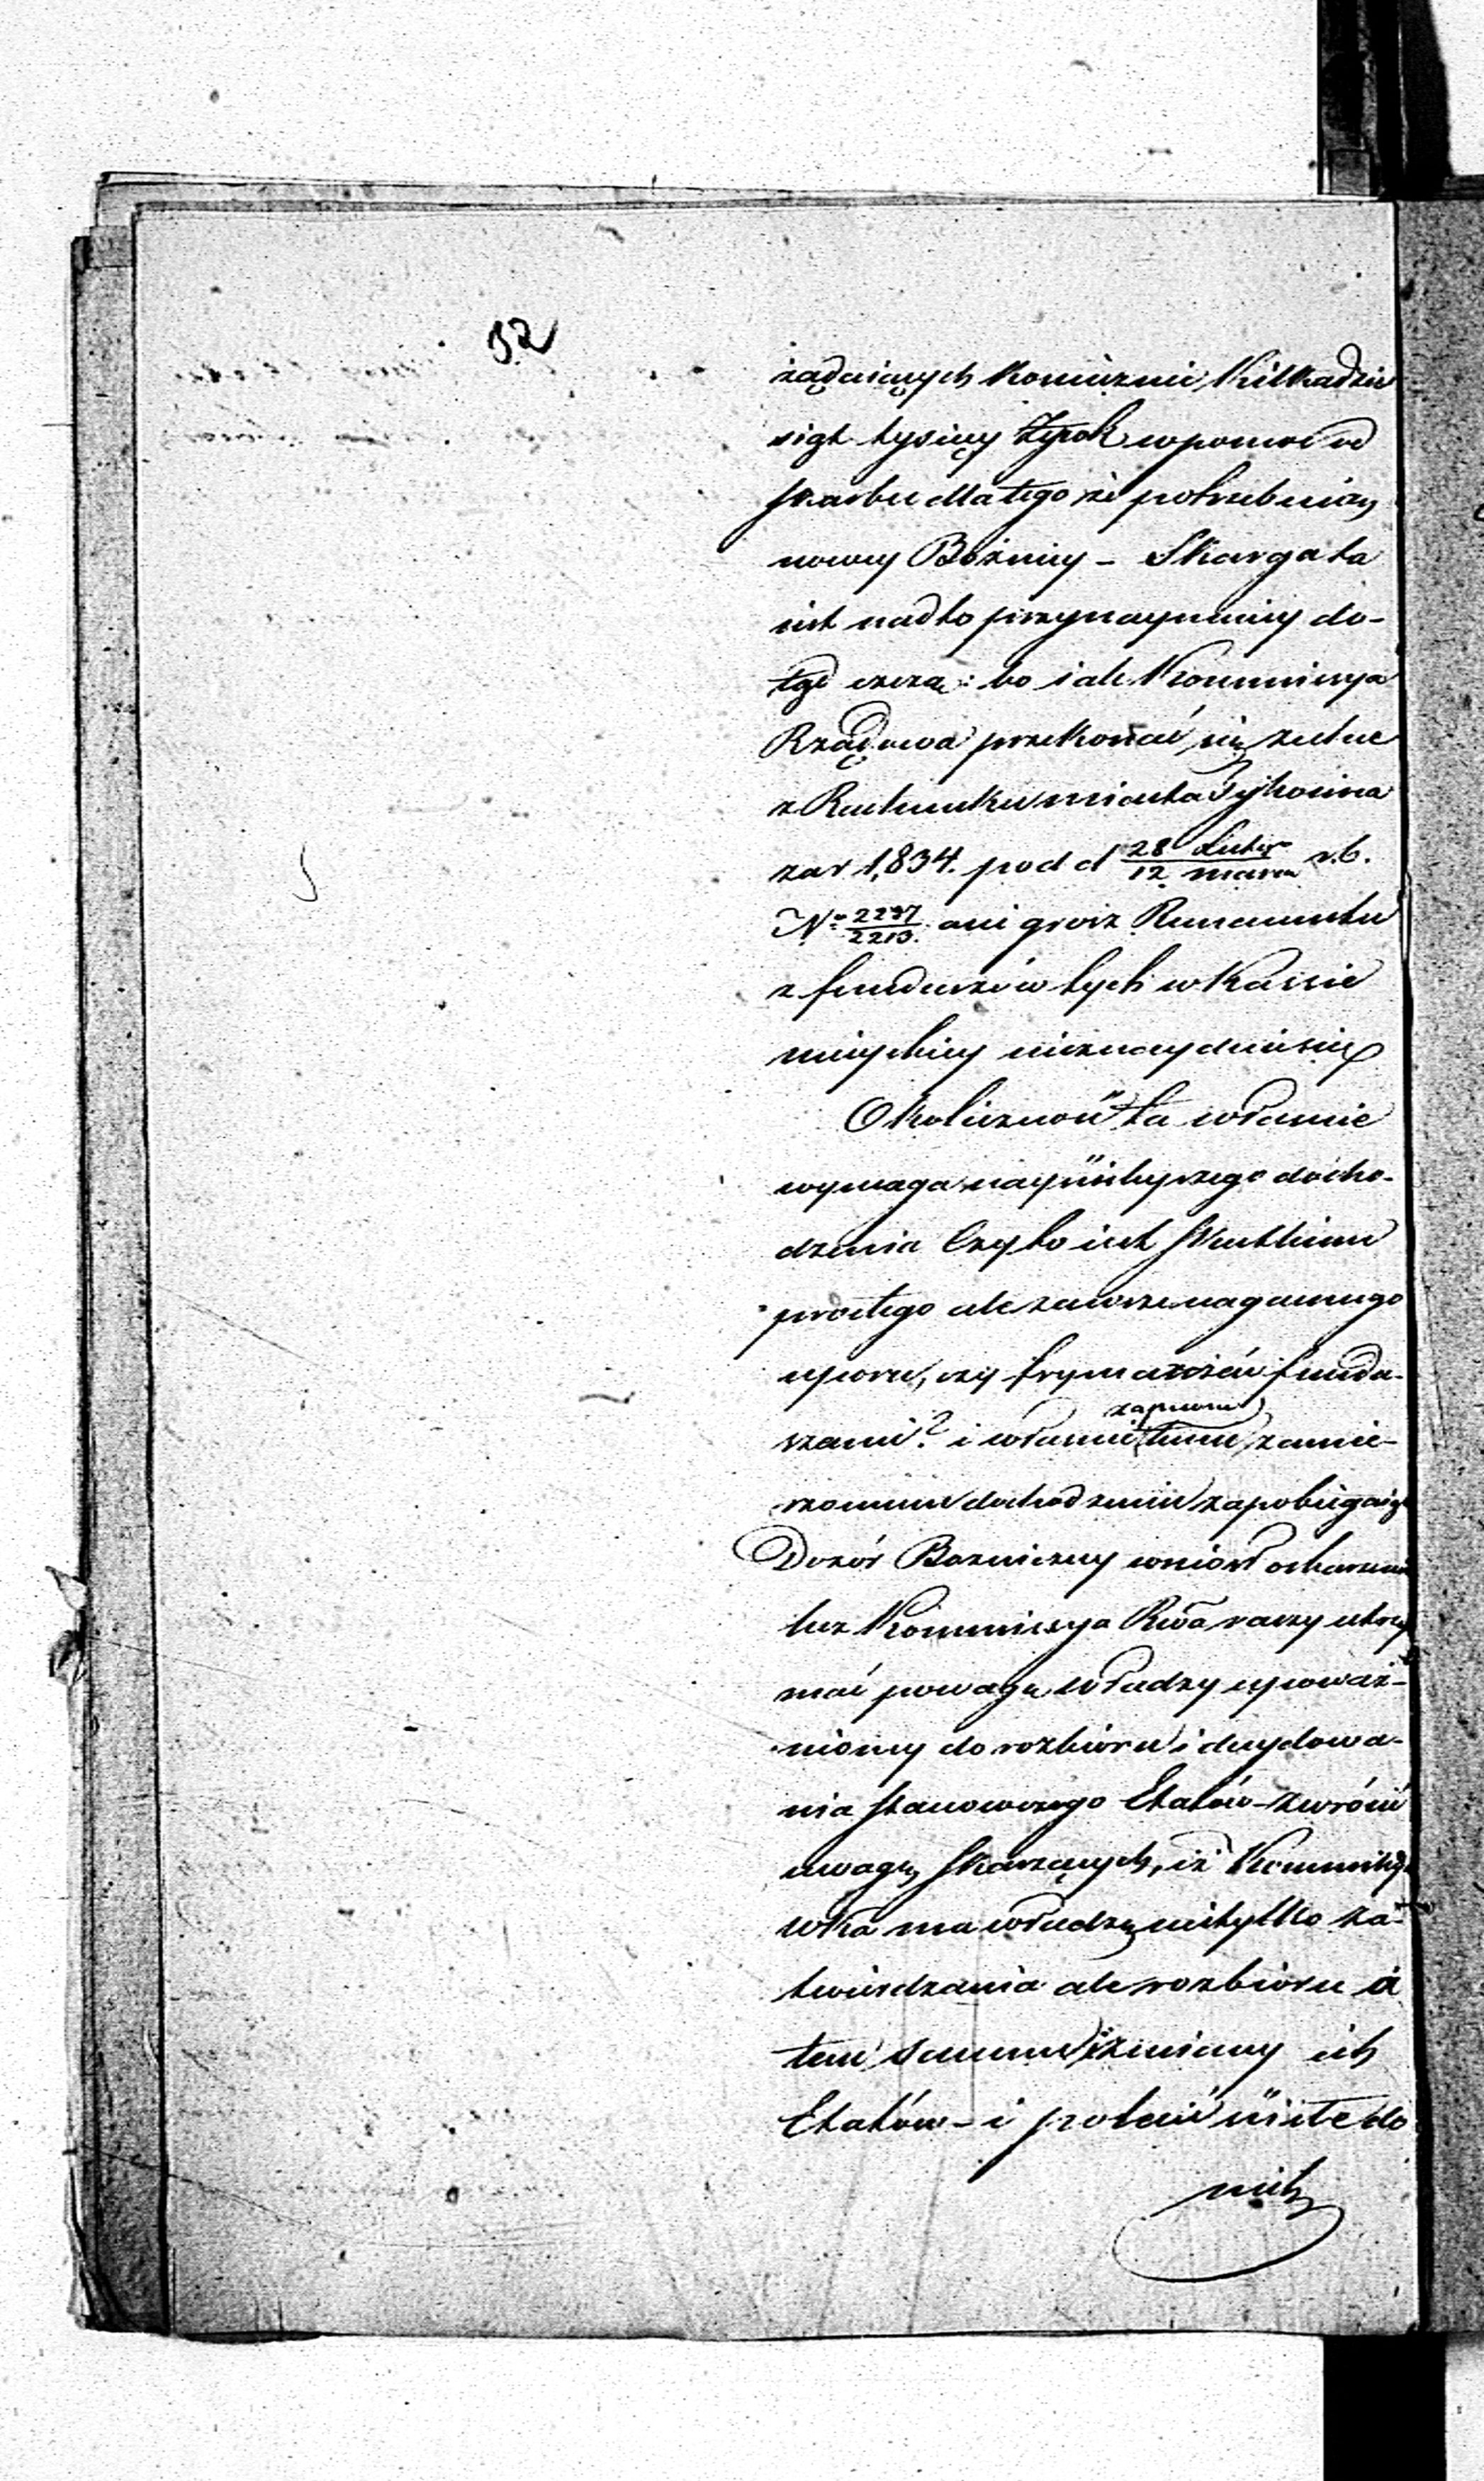 32
żądaiących koniecznie kilkadzie
siąt tysięcy Złpolk wpomoc od
skarbu dlatego że potrzebuią
nowey Bóżnicy – Skarga ta
iest nadto przynaymniey do-
tąd czczą: bo iak Kommissya
Rządowa przekonać się zechce
z Rachunku miasta Tykocina
za r 1,834. pod d 28 Lutego/12 marca r. b.
No 2297/2213. ani grosz Remanentu
z funduszów tych w Kassie
mieyskiey nieznayduie się
Okoliczność ta właśnie
wymaga nayściślejszego docho-
dzenia Czy to iest skutkiem
prostego ale zawsze nagannego
uporu, czy frymarczeń fundu-
szami? i właśnie temu zapewne zamie-
rzonemu dochodzeniu zapobiegaiąc
Dozór Bozniczny wniósł oskarżenie
lecz Kommissya Rwa raczy utrzy
mać powagę władzy upoważ-
nioney do rozbioru i decydowa-
nia stanowczego Etatów – zwrócić
uwagę skarzących, iż Kommissya
Wka ma władzę nietylko za-
twierdzania ale rozbioru a
tem samem i zmiany ich
Etatów – i polecić ściśle do
nich